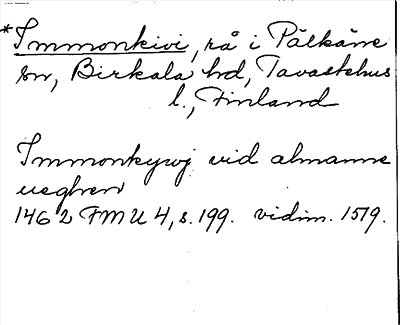 *Immonkivi, rå i Pälkäne
sn, Birkala hd, Tavastehus
l., Finland
Immonkywj vid almanne
weghen
1462 FMU 4, s. 199. vidim. 1519.